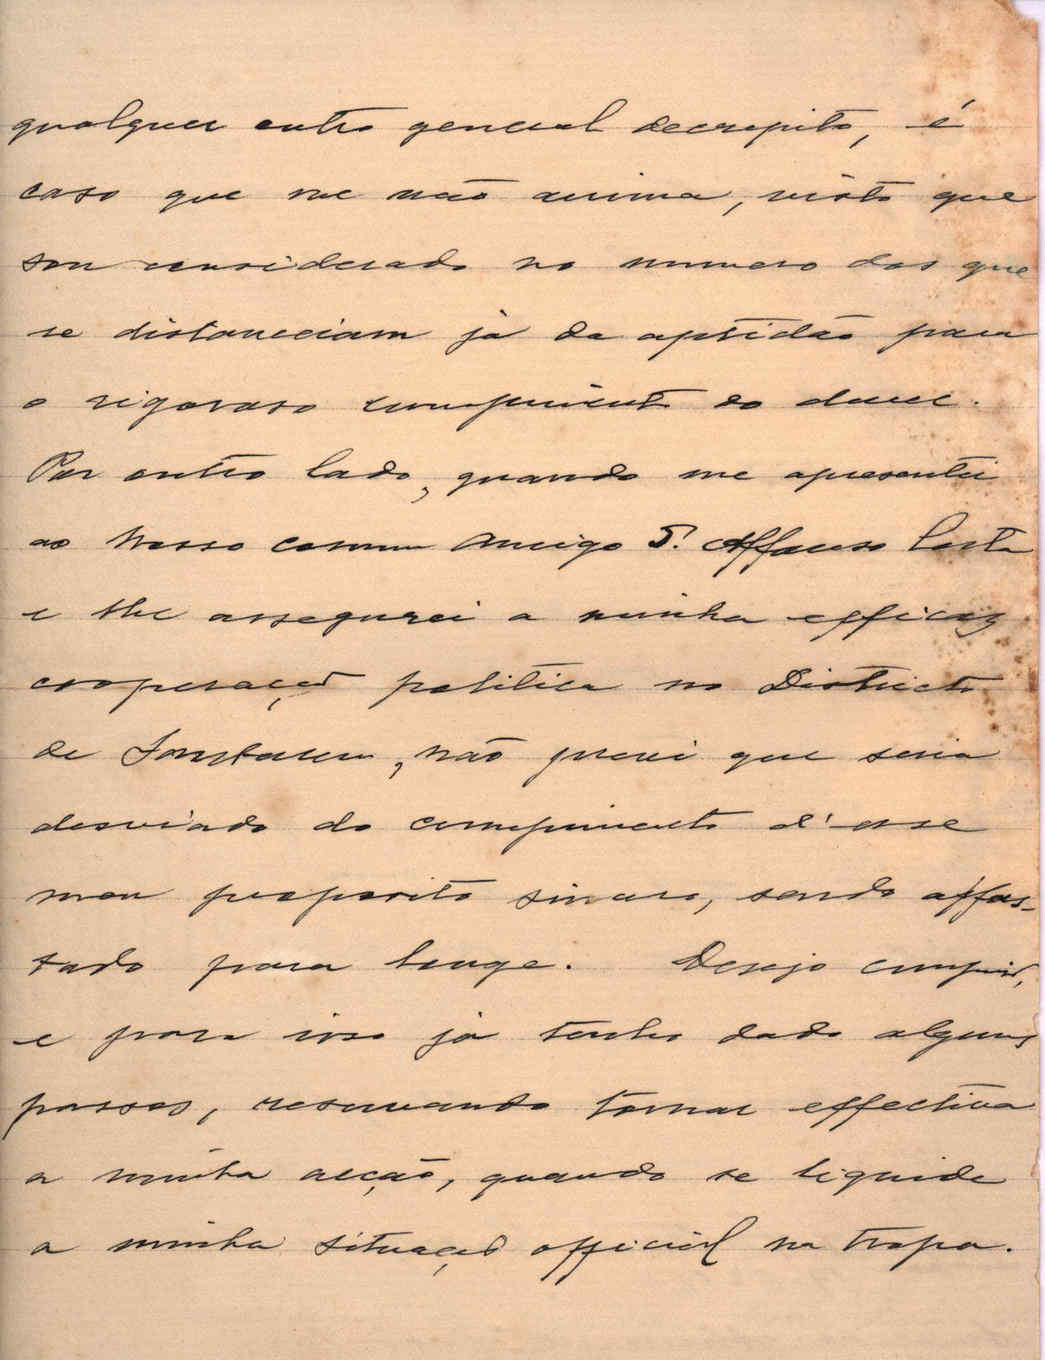 qualquer outro general decrepito, é
caso que me não anima, visto que
sou considerado no numero dos que
se distanceiam já da aptidão para
o rigoroso cumprimento do dever.
Por outro lado, quando me apresentei
ao Nosso comum Amigo S.r Affonso Costa
e lhe assegurei a minha efficaz
cooperação politica no Districto
de Santarem, não previ que seria
desviado do cumprimento d'esse
meu proposito sincero, sendo affas-
tado para longe. Desejo cumprir,
e para isso já tenho dado alguns
passos, reservando tornar effectiva
a minha acção, quando se liquide
a minha situação official na tropa.